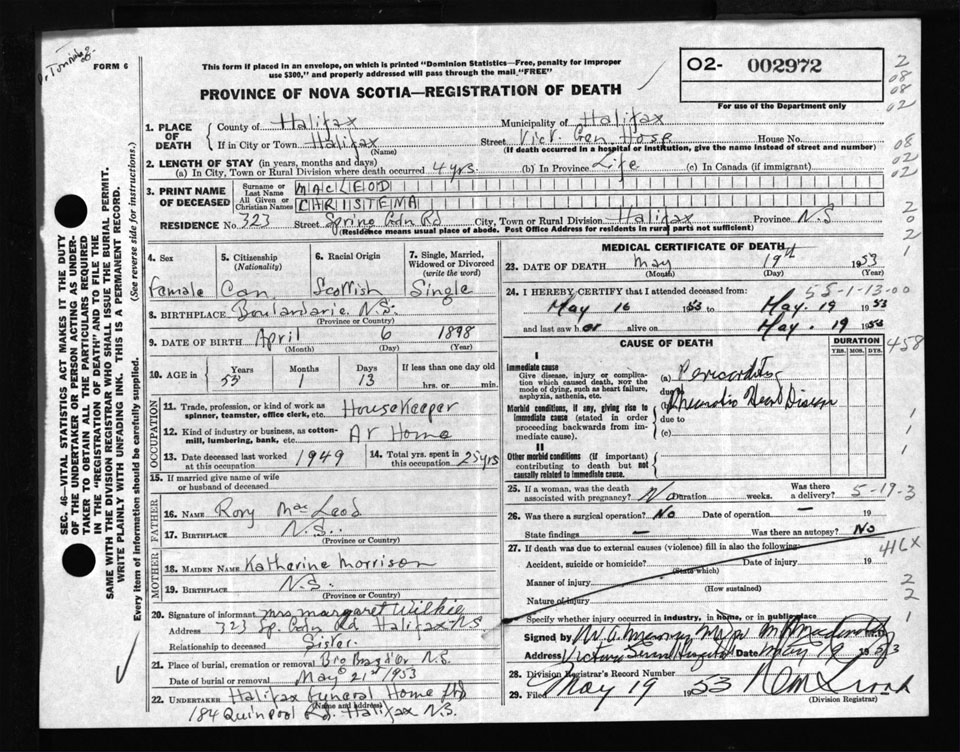 FORM 6
This form if placed in an envelope, on which is printed "Dominion Statistics—Free, penalty for improper
use $300," and properly addressed will pass through the mail "FREE"
PROVINCE OF NOVA SCOTIA—REGISTRATION OF DEATH
O2- 002972
For use of the Department only
SEC. 46—VITAL STATISTICS ACT MAKES IT THE DUTY
OF THE UNDERTAKER OR PERSON ACTING AS UNDER-
TAKER TO OBTAIN ALL THE PARTICULARS REQUIRED
IN THE "REGISTRATION OF DEATH" AND TO FILE THE
SAME WITH THE DIVISION REGISTRAR WHO SHALL ISSUE THE BURIAL PERMIT.
WRITE PLAINLY WITH UNFADING INK. THIS IS A PERMANENT RECORD.
Every item of information should be carefully supplied. (See reverse side for instructions.)
1. PLACE OF DEATH
County of Halifax Municipality of Halifax
If in City or Town Halifax (Name) Street Vict. Gen Hosp. House No.
(If death occurred in a hospital or institution, give the name instead of street and number)
2. LENGTH OF STAY (in years, months and days)
(a) In City, Town or Rural Division where death occurred 4 yrs. (b) In Province Life (c) In Canada (if immigrant)
3. PRINT NAME OF DECEASED
Surname or Last Name MACLEOD
All Given or Christian Names CHRISTENA
RESIDENCE No. 323 Street Spring Gdn Rd City, Town or Rural Division Halifax Province N.S
(Residence means usual place of abode. Post Office Address for residents in rural parts not sufficient)
4. Sex Female
5. Citizenship (Nationality) Can
6. Racial Origin Scottish
7. Single, Married, Widowed or Divorced (write the word) Single
8. BIRTHPLACE Boulardarie N.S.
(Province or Country)
9. DATE OF BIRTH April 6 1898
(Month) (Day) (Year)
10. AGE in Years 55 Months 1 Days 13 If less than one day old
hrs. or min.
OCCUPATION
11. Trade, profession, or kind of work as spinner, teamster, office clerk, etc. Housekeeper
12. Kind of industry or business, as cotton-mill, lumbering, bank, etc. At Home
13. Date deceased last worked at this occupation 1949 14. Total yrs. spent in this occupation 25 yrs
15. If married give name of wife or husband of deceased
FATHER
16. NAME Rory MacLeod
17. BIRTHPLACE N.S.
(Province or Country)
MOTHER
18. MAIDEN NAME Katherine Morrison
19. BIRTHPLACE N.S.
(Province or Country)
20. Signature of informant Mrs Margaret Wilkie
Address 323 Sp. Gdn Rd Halifax NS
Relationship to deceased Sister.
21. Place of burial, cremation or removal Big Bras d'or N.S.
Date of burial or removal May 21st 1953
22. UNDERTAKER Halifax Funeral Home Ltd
(Name and address)
184 Quinpool Rd. Halifax N.S.
MEDICAL CERTIFICATE OF DEATH
23. DATE OF DEATH May 19th 1953
(Month) (Day) (Year)
24. I HEREBY CERTIFY that I attended deceased from: 55-1-13-00
May 16 1953 to May. 19 1953
and last saw her alive on May. 19 1953
CAUSE OF DEATH
DURATION
YRS. MOS. DYS.
458
I
Immediate cause
Give disease, injury or complication which caused death, not the mode of dying, such as heart failure, asphyxia, asthenia, etc.
(a) Pericarditis
due to
Morbid conditions, if any, giving rise to immediate cause (stated in order proceeding backwards from immediate cause).
(b) Rheumatic Heart Disease
due to
(c)
II
Other morbid conditions (if important) contributing to death but not causally related to immediate cause.
25. If a woman, was the death associated with pregnancy? No Duration weeks. Was there a delivery? 5-19-3
26. Was there a surgical operation? No Date of operation — 19
State findings — Was there an autopsy? No
27. If death was due to external causes (violence) fill in also the following: 416X
Accident, suicide or homicide? (State which) Date of injury 19
Manner of injury (How sustained)
Nature of injury
Specify whether injury occurred in industry, in home, or in public place
Signed by M.D.
Address Victoria General Hospital Date May 19 1953
28. Division Registrar's Record Number
29. Filed May 19 1953
(Division Registrar)